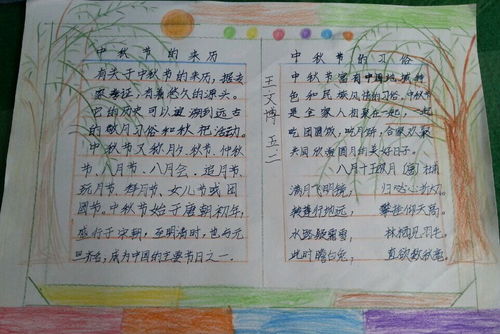 中秋节的来历
有关于中秋节的来历，据专
家考证，有着悠久的源头。
它的历史可以追溯到远
古的敬月习俗和秋祀活动。
中秋节又称月夕、秋节、仲秋
节、八月节、八月会、追月节、
玩月节、拜月节、女儿节或团
圆节。中秋节始于唐朝初年，
盛行于宋朝，至明清时，也与元
旦齐名，成为中国的主要节日之一。
王文博 五二
中秋节的习俗
中秋节富有中国地域特
色和民族风情的习俗。中秋节
是全家人相聚在一起，一起
吃团圆饭，吃月饼，合家欢聚
共同欣赏圆月的美好日子。
八月十五夜月 杜甫
满月飞明镜， 归心折大刀。
转蓬行地远， 攀桂仰天高。
水路疑霜雪， 林栖见羽毛。
此时瞻白兔， 直欲数秋毫。